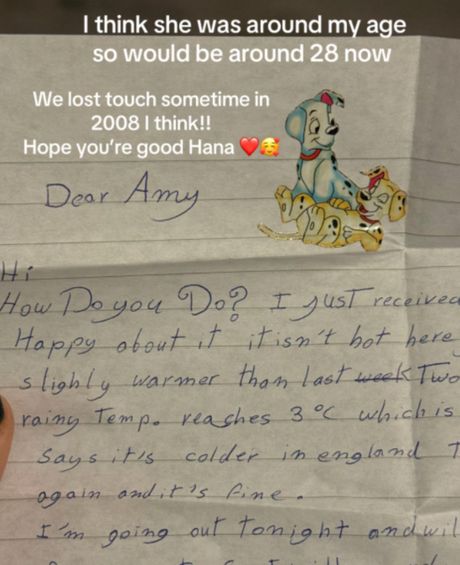 I think she was around my age
so would be around 28 now
We lost touch sometime in
2008 I think!!
Hope you're good Hana ❤️🥰
Dear Amy
Hi
How Do you Do? I just received
Happy about it it isn't hot here
slighly warmer than last week Two
rainy Temp. reaches 3°C which is
Says it's colder in england
again and it's fine.
I'm going out tonight and wil